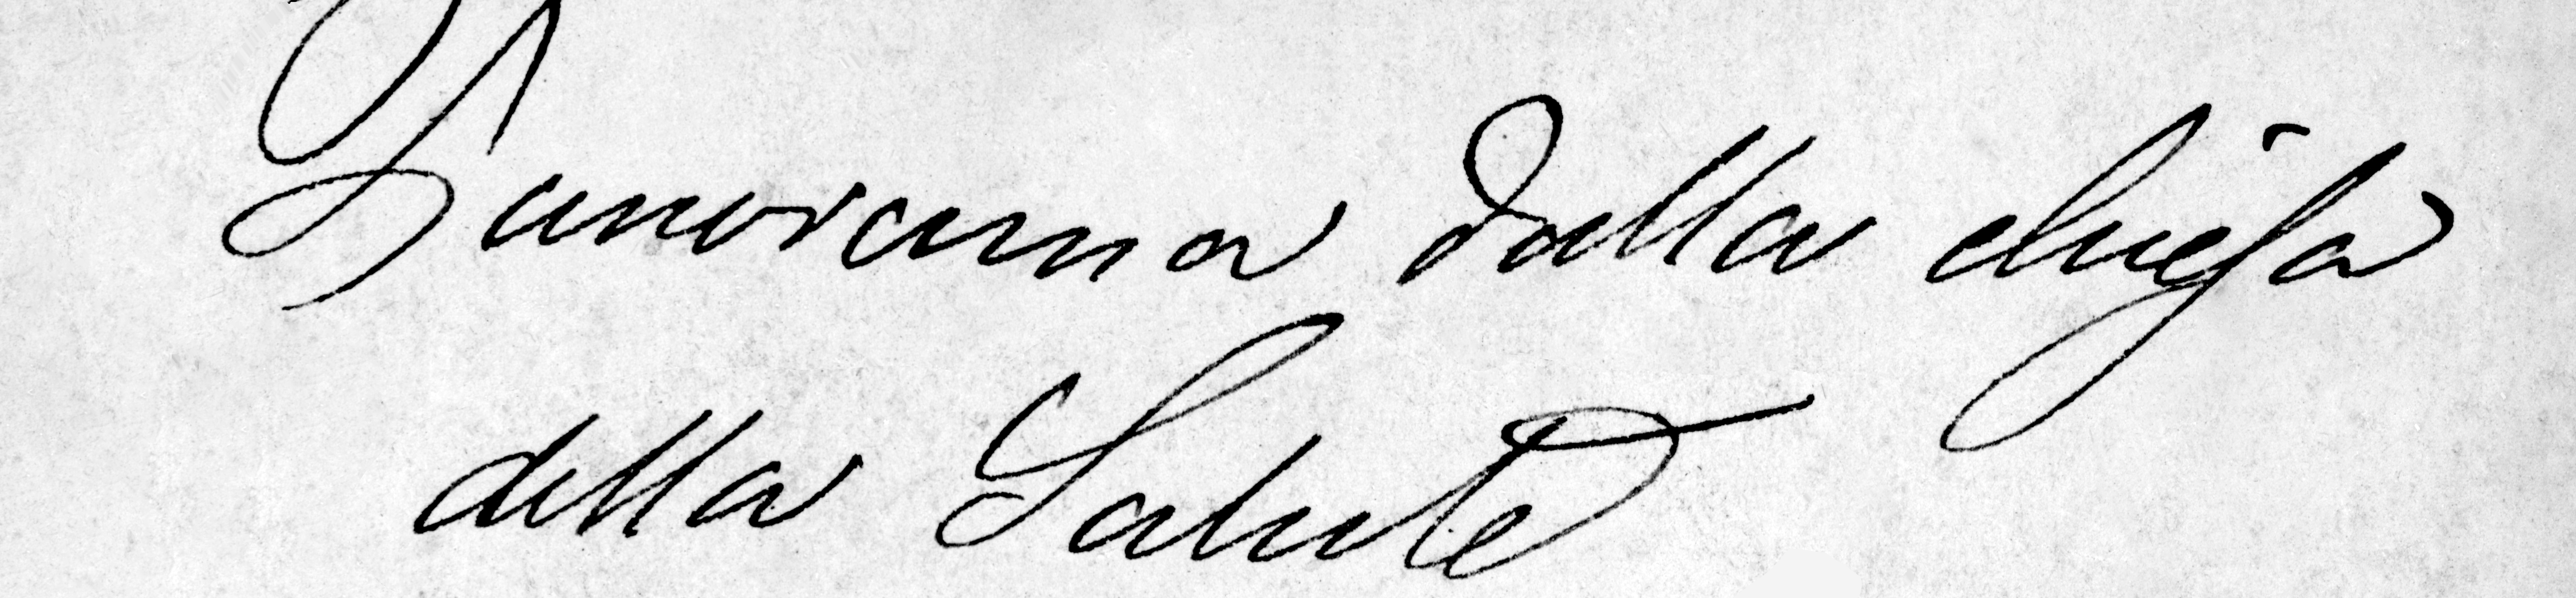 Panorama dalla chiesa
della Salute